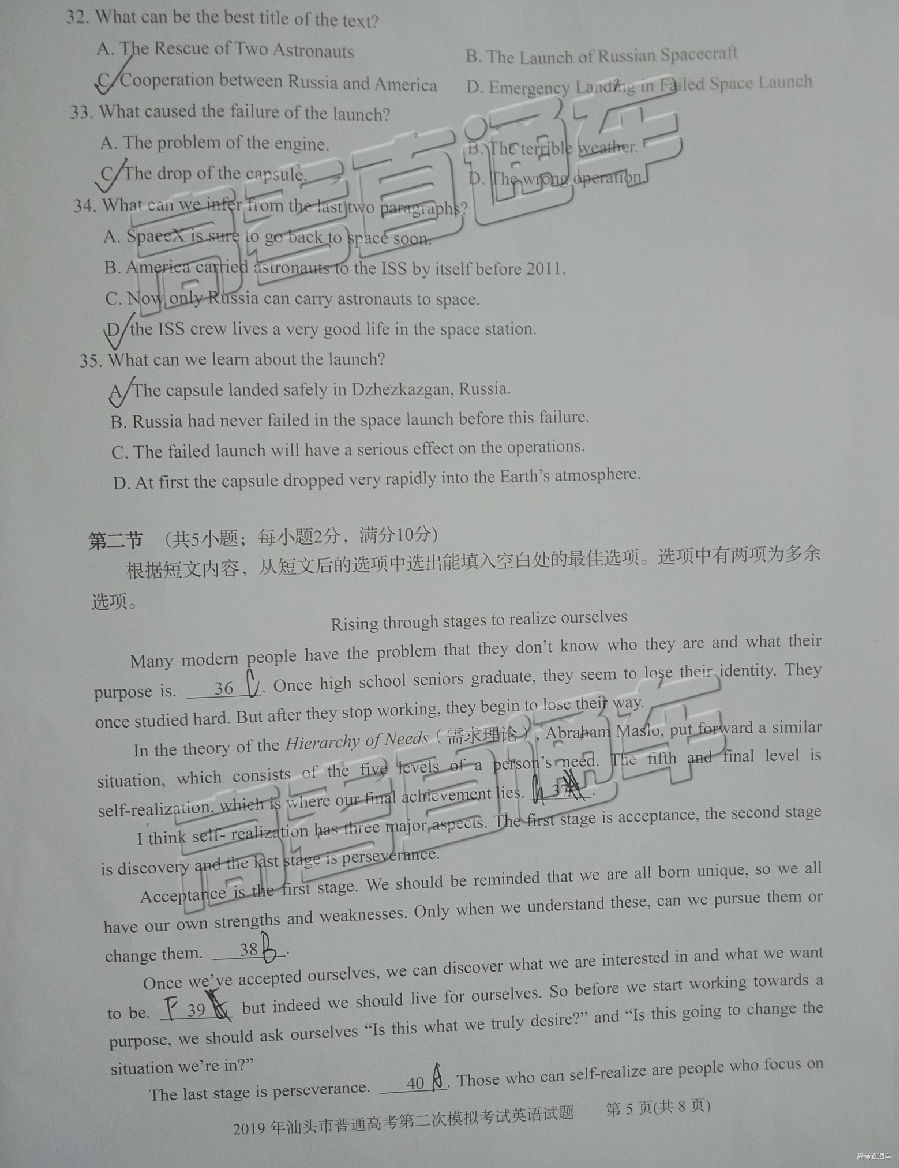 32. What can be the best title of the text?
A. The Rescue of Two Astronauts
B. The Launch of Russian Spacecraft
C. Cooperation between Russia and America
D. Emergency Landing in Failed Space Launch
33. What caused the failure of the launch?
A. The problem of the engine.
B. The terrible weather.
C. The drop of the capsule.
D. The wrong operation.
34. What can we infer from the last two paragraphs?
A. SpaceX is sure to go back to space soon.
B. America carried astronauts to the ISS by itself before 2011.
C. Now only Russia can carry astronauts to space.
D. the ISS crew lives a very good life in the space station.
35. What can we learn about the launch?
A. The capsule landed safely in Dzhezkazgan, Russia.
B. Russia had never failed in the space launch before this failure.
C. The failed launch will have a serious effect on the operations.
D. At first the capsule dropped very rapidly into the Earth's atmosphere.
第二节 (共5小题;每小题2分,满分10分)
根据短文内容,从短文后的选项中选出能填入空白处的最佳选项。选项中有两项为多余
选项。
Rising through stages to realize ourselves
Many modern people have the problem that they don't know who they are and what their
purpose is. 36 . Once high school seniors graduate, they seem to lose their identity. They
once studied hard. But after they stop working, they begin to lose their way.
In the theory of the Hierarchy of Needs (需求理论), Abraham Maslo, put forward a similar
situation, which consists of the five levels of a person's need. The fifth and final level is
self-realization, which is where our final achievement lies. 37 .
I think self- realization has three major aspects. The first stage is acceptance, the second stage
is discovery and the last stage is perseverance.
Acceptance is the first stage. We should be reminded that we are all born unique, so we all
have our own strengths and weaknesses. Only when we understand these, can we pursue them or
change them. 38 B .
Once we've accepted ourselves, we can discover what we are interested in and what we want
to be. F 39 but indeed we should live for ourselves. So before we start working towards a
purpose, we should ask ourselves “Is this what we truly desire?” and “Is this going to change the
situation we're in?”
The last stage is perseverance. 40 . Those who can self-realize are people who focus on
2019 年汕头市普通高考第二次模拟考试英语试题 第 5 页(共 8 页)
高考直通车
高考直通车